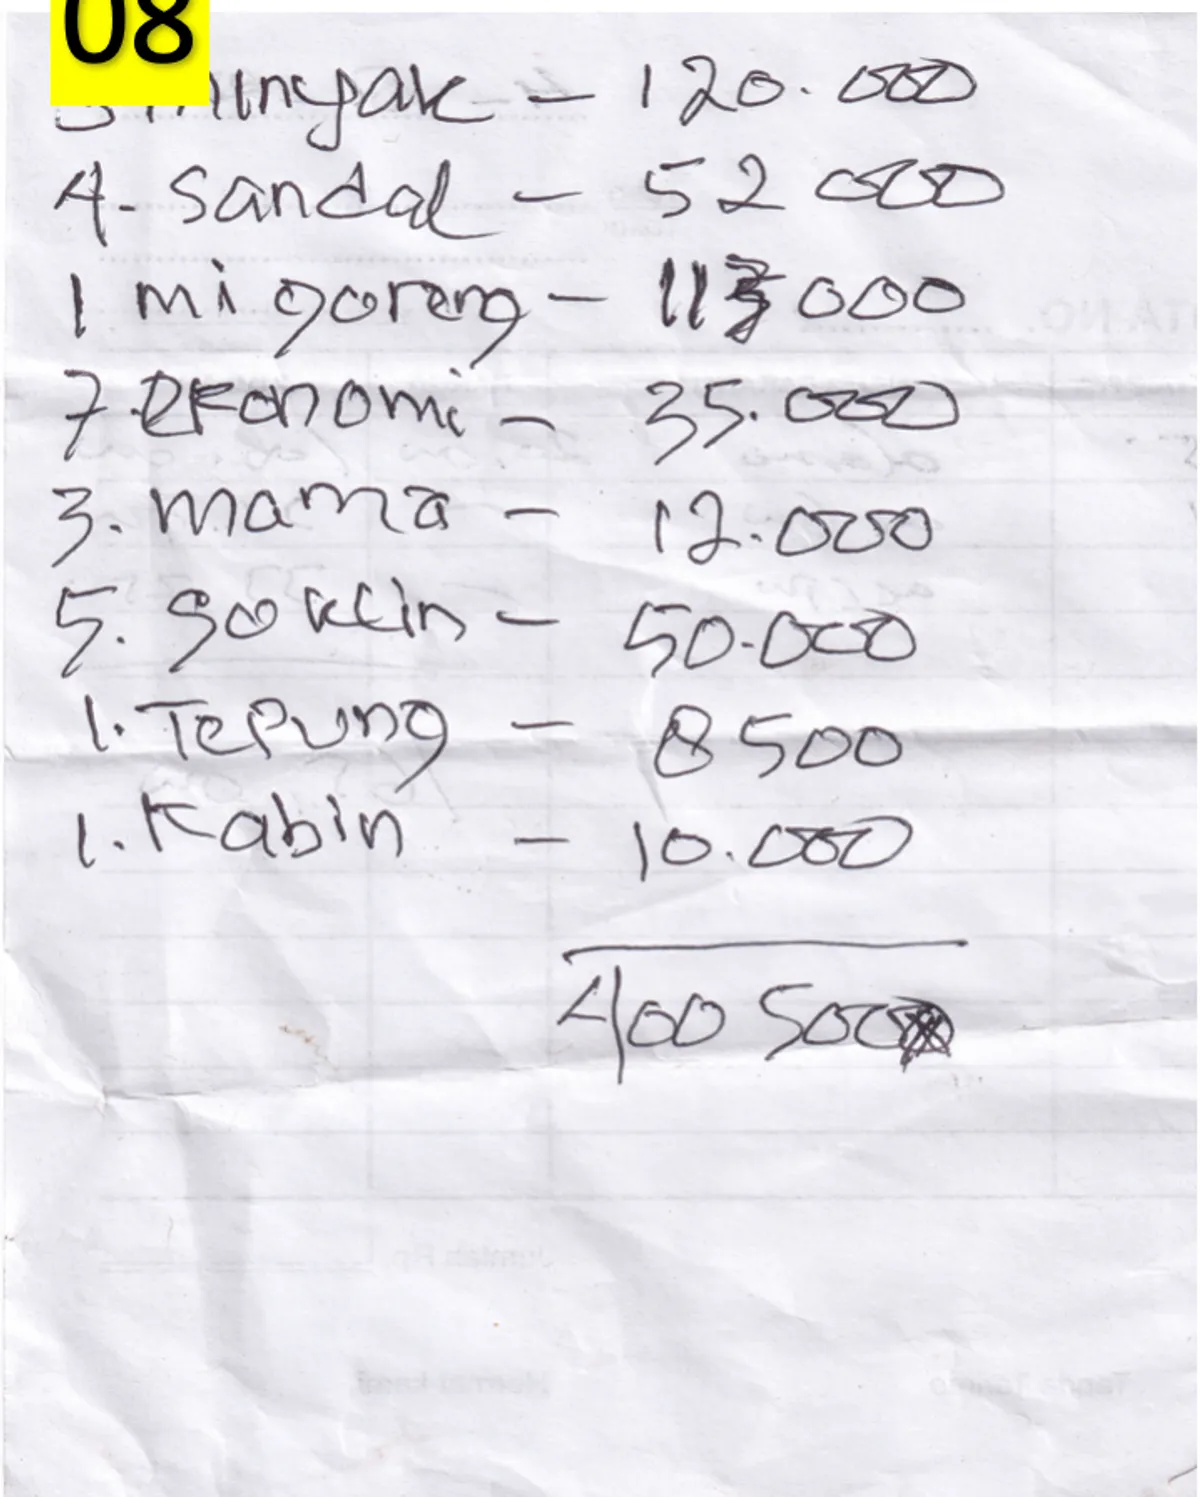 08
minyak - 120.000
4 - Sandal - 52 000
1 mi goreng - 113 000
7. Ekonomi - 35.000
3. mama - 12.000
5. Soklin - 50.000
1. Tepung - 8500
1. Kabin - 10.000
400 500